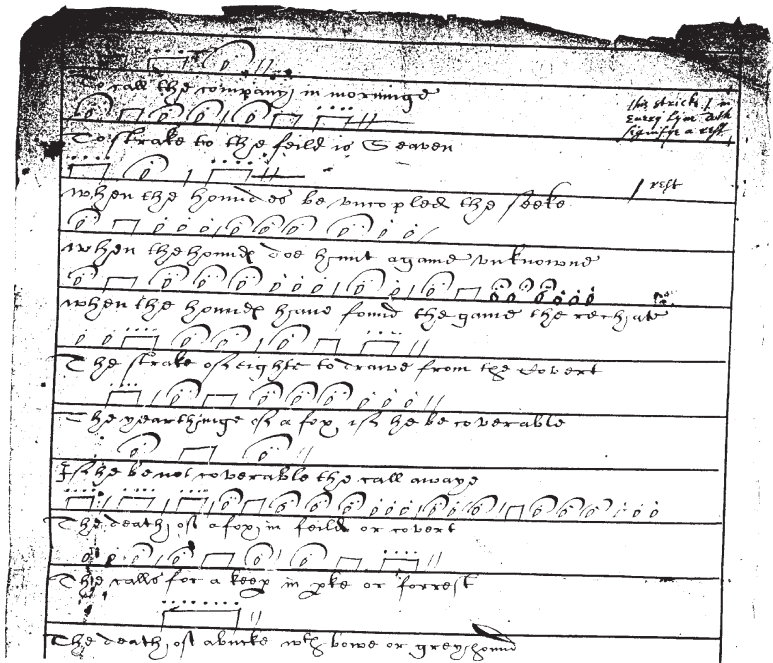 To call the company in morninge
this stricke | in
Euery lyne doth
signifie a rest
To strake to the feild is Seaven
rest
when the houndes be vncopled the seeke
when the houndes doe hunt a game vnknowne
when the houndes haue found the game the rechate
The strake of eighte to drawe from the Covert
The yearthinge of a fox if he be coverable
If he be not coverable the call awaye
The death of a fox in feild or covert
The calls for a keep in pke or forrest
The death of a bucke wth bowe or greyhound